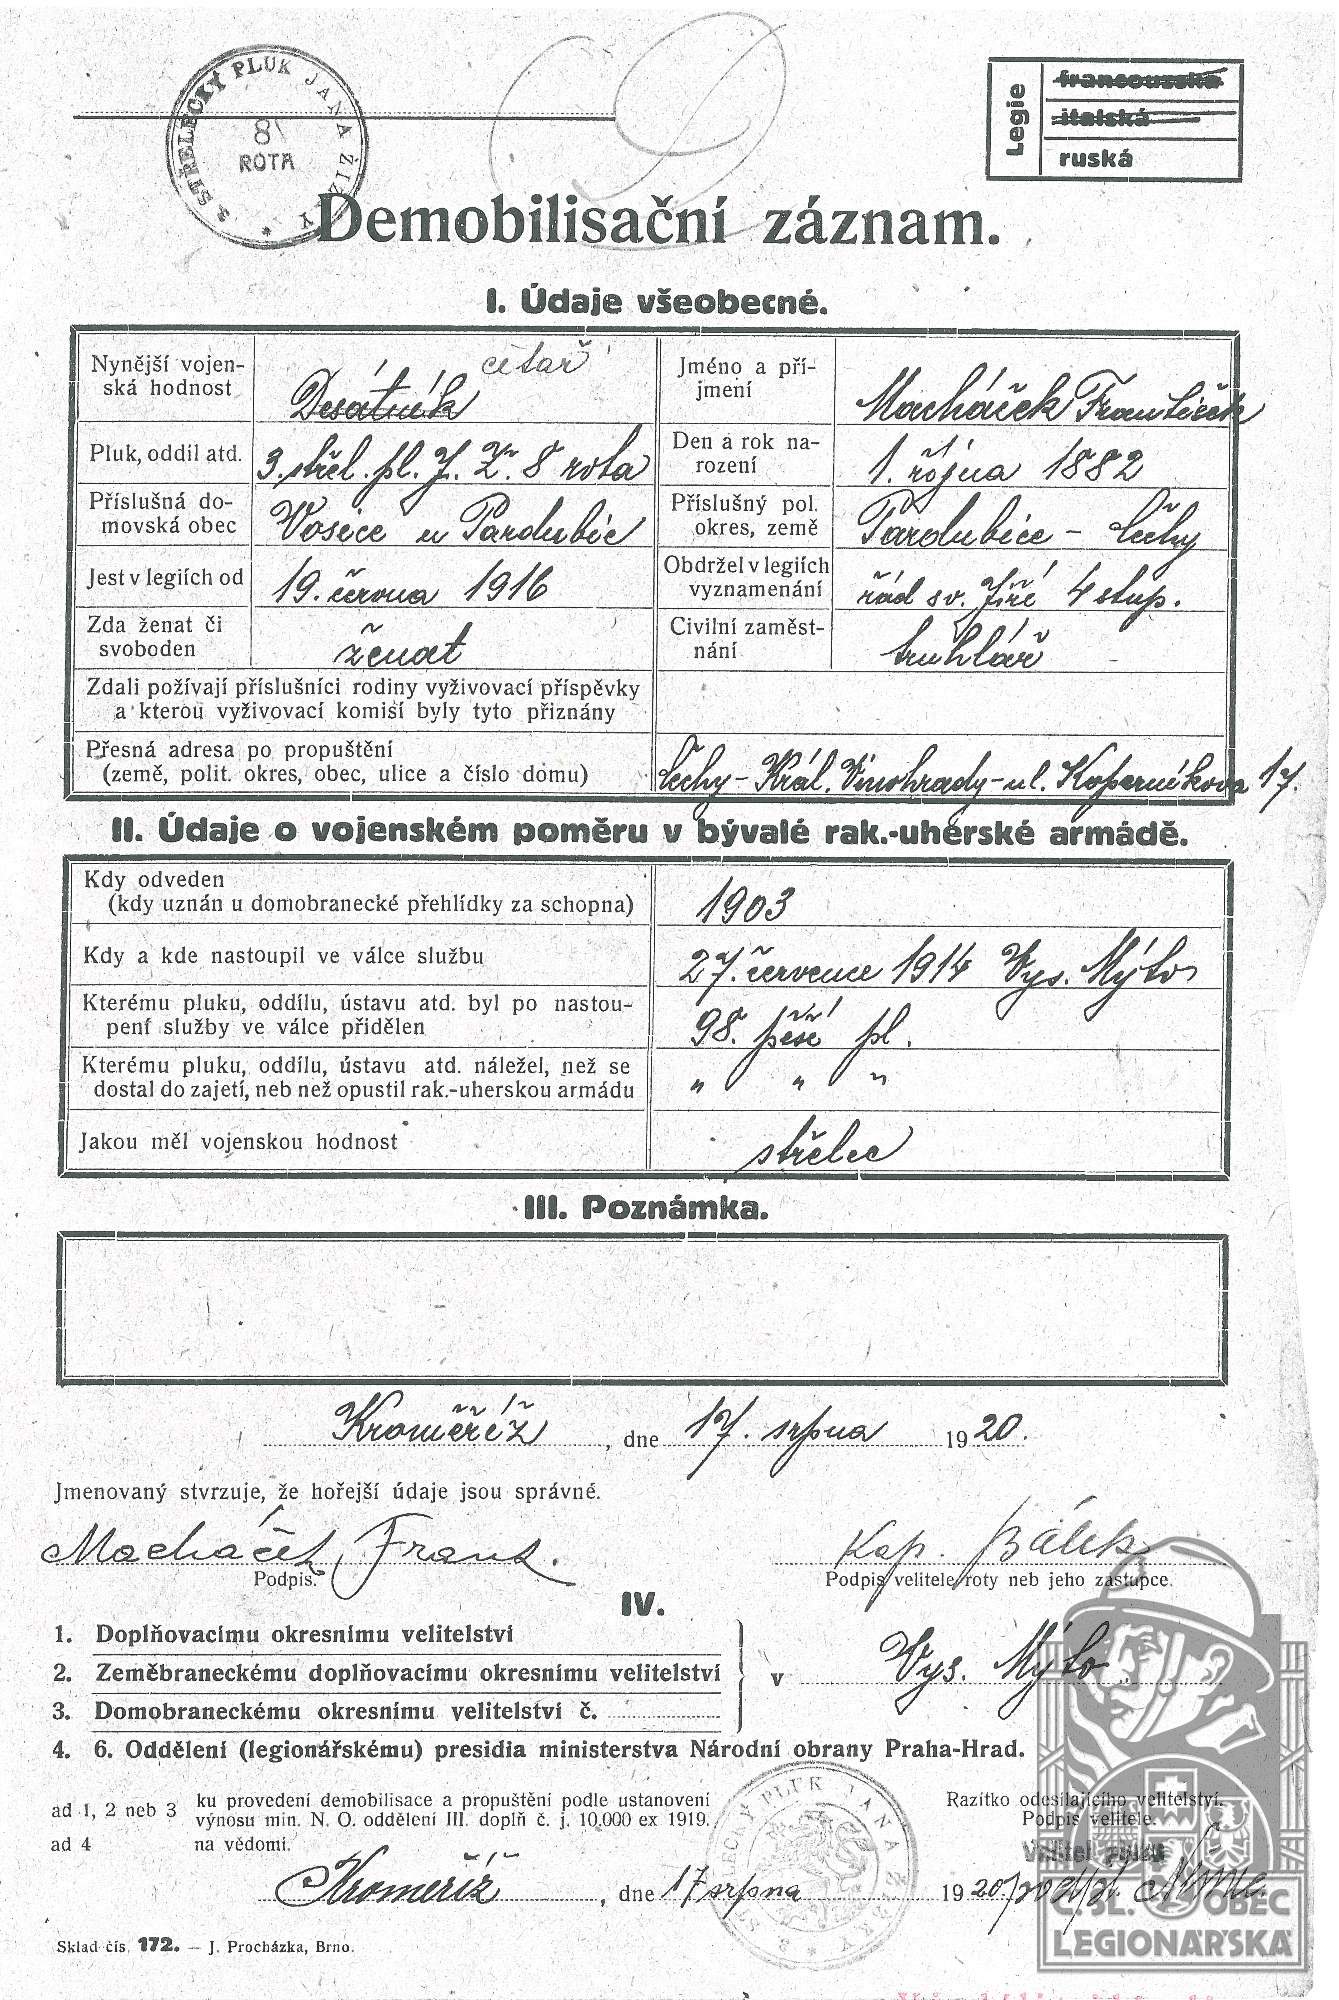 3 STŘELECKÝ PLUK JANA ŽIŽKY *
8
ROTA
Legie
francouzská
italská
ruská
Demobilisační záznam.
I. Údaje všeobecné.
Nynější vojen-
ská hodnost
Desátník
četař
Jméno a pří-
jmení
Macháček František
Pluk, oddíl atd.
3. střel. pl. J. Ž. 8 rota
Den a rok na-
rození
1. října 1882
Příslušná do-
movská obec
Vosice u Pardubic
Příslušný pol.
okres, země
Pardubice - Čechy
Jest v legiích od
19. června 1916
Obdržel v legiích
vyznamenání
řád sv. Jiří 4 stup.
Zda ženat či
svoboden
ženat
Civilní zaměst-
nání
truhlář
Zdali požívají příslušníci rodiny vyživovací příspěvky
a kterou vyživovací komisí byly tyto přiznány
Přesná adresa po propuštění
(země, polit. okres, obec, ulice a číslo domu)
Čechy - Král. Vinohrady - ul. Koperníkova 17.
II. Údaje o vojenském poměru v bývalé rak.-uherské armádě.
Kdy odveden
(kdy uznán u domobranecké přehlídky za schopna)
1903
Kdy a kde nastoupil ve válce službu
27. července 1914 Vys. Mýto
Kterému pluku, oddílu, ústavu atd. byl po nastou-
pení služby ve válce přidělen
98. pěší pl.
Kterému pluku, oddílu, ústavu atd. náležel, než se
dostal do zajetí, neb než opustil rak.-uherskou armádu
" " "
Jakou měl vojenskou hodnost
střelec
III. Poznámka.
Kroměříž, dne 17. srpna 1920.
Jmenovaný stvrzuje, že hořejší údaje jsou správné.
Macháček Frant.
Podpis.
Kap. Bálek
Podpis velitele roty neb jeho zástupce.
IV.
1. Doplňovacímu okresnímu velitelství
2. Zeměbraneckému doplňovacímu okresnímu velitelství
3. Domobraneckému okresnímu velitelství č.
v Vys. Mýto
4. 6. Oddělení (legionářskému) presidia ministerstva Národní obrany Praha-Hrad.
ad 1, 2 neb 3
ku provedení demobilisace a propuštění podle ustanovení
výnosu min. N. O. oddělení III. doplň č. j. 10.000 ex 1919.
ad 4
na vědomí.
Razítko odesílajícího velitelství.
Podpis velitele.
Velitel pluku
3 STŘELECKÝ PLUK JANA ŽIŽKY *
Kroměříž, dne 17 srpna 1920.
Sklad čís. 172. — J. Procházka, Brno.
Č. SL. OBEC
LEGIONÁŘSKÁ